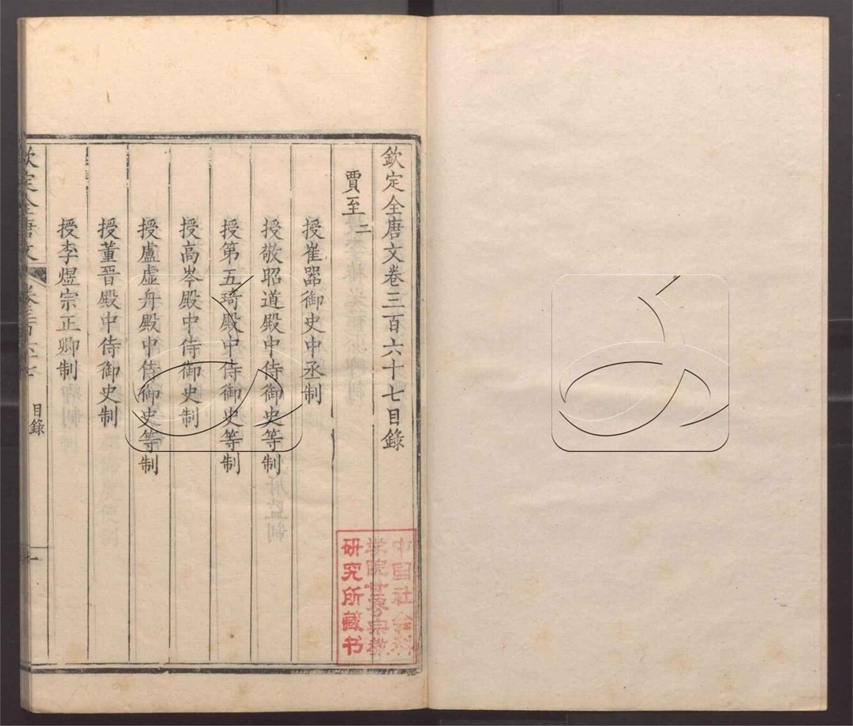 欽定全唐文卷三百六十七目錄
賈至二
授崔器御史中丞制
授敬昭道殿中侍御史等制
授第五琦殿中侍御史等制
授高岑殿中侍御史制
授盧虛舟殿中侍御史等制
授董晉殿中侍御史制
授李煜宗正卿制
欽定全唐文
卷三百六十七
目錄
一
研究所藏书